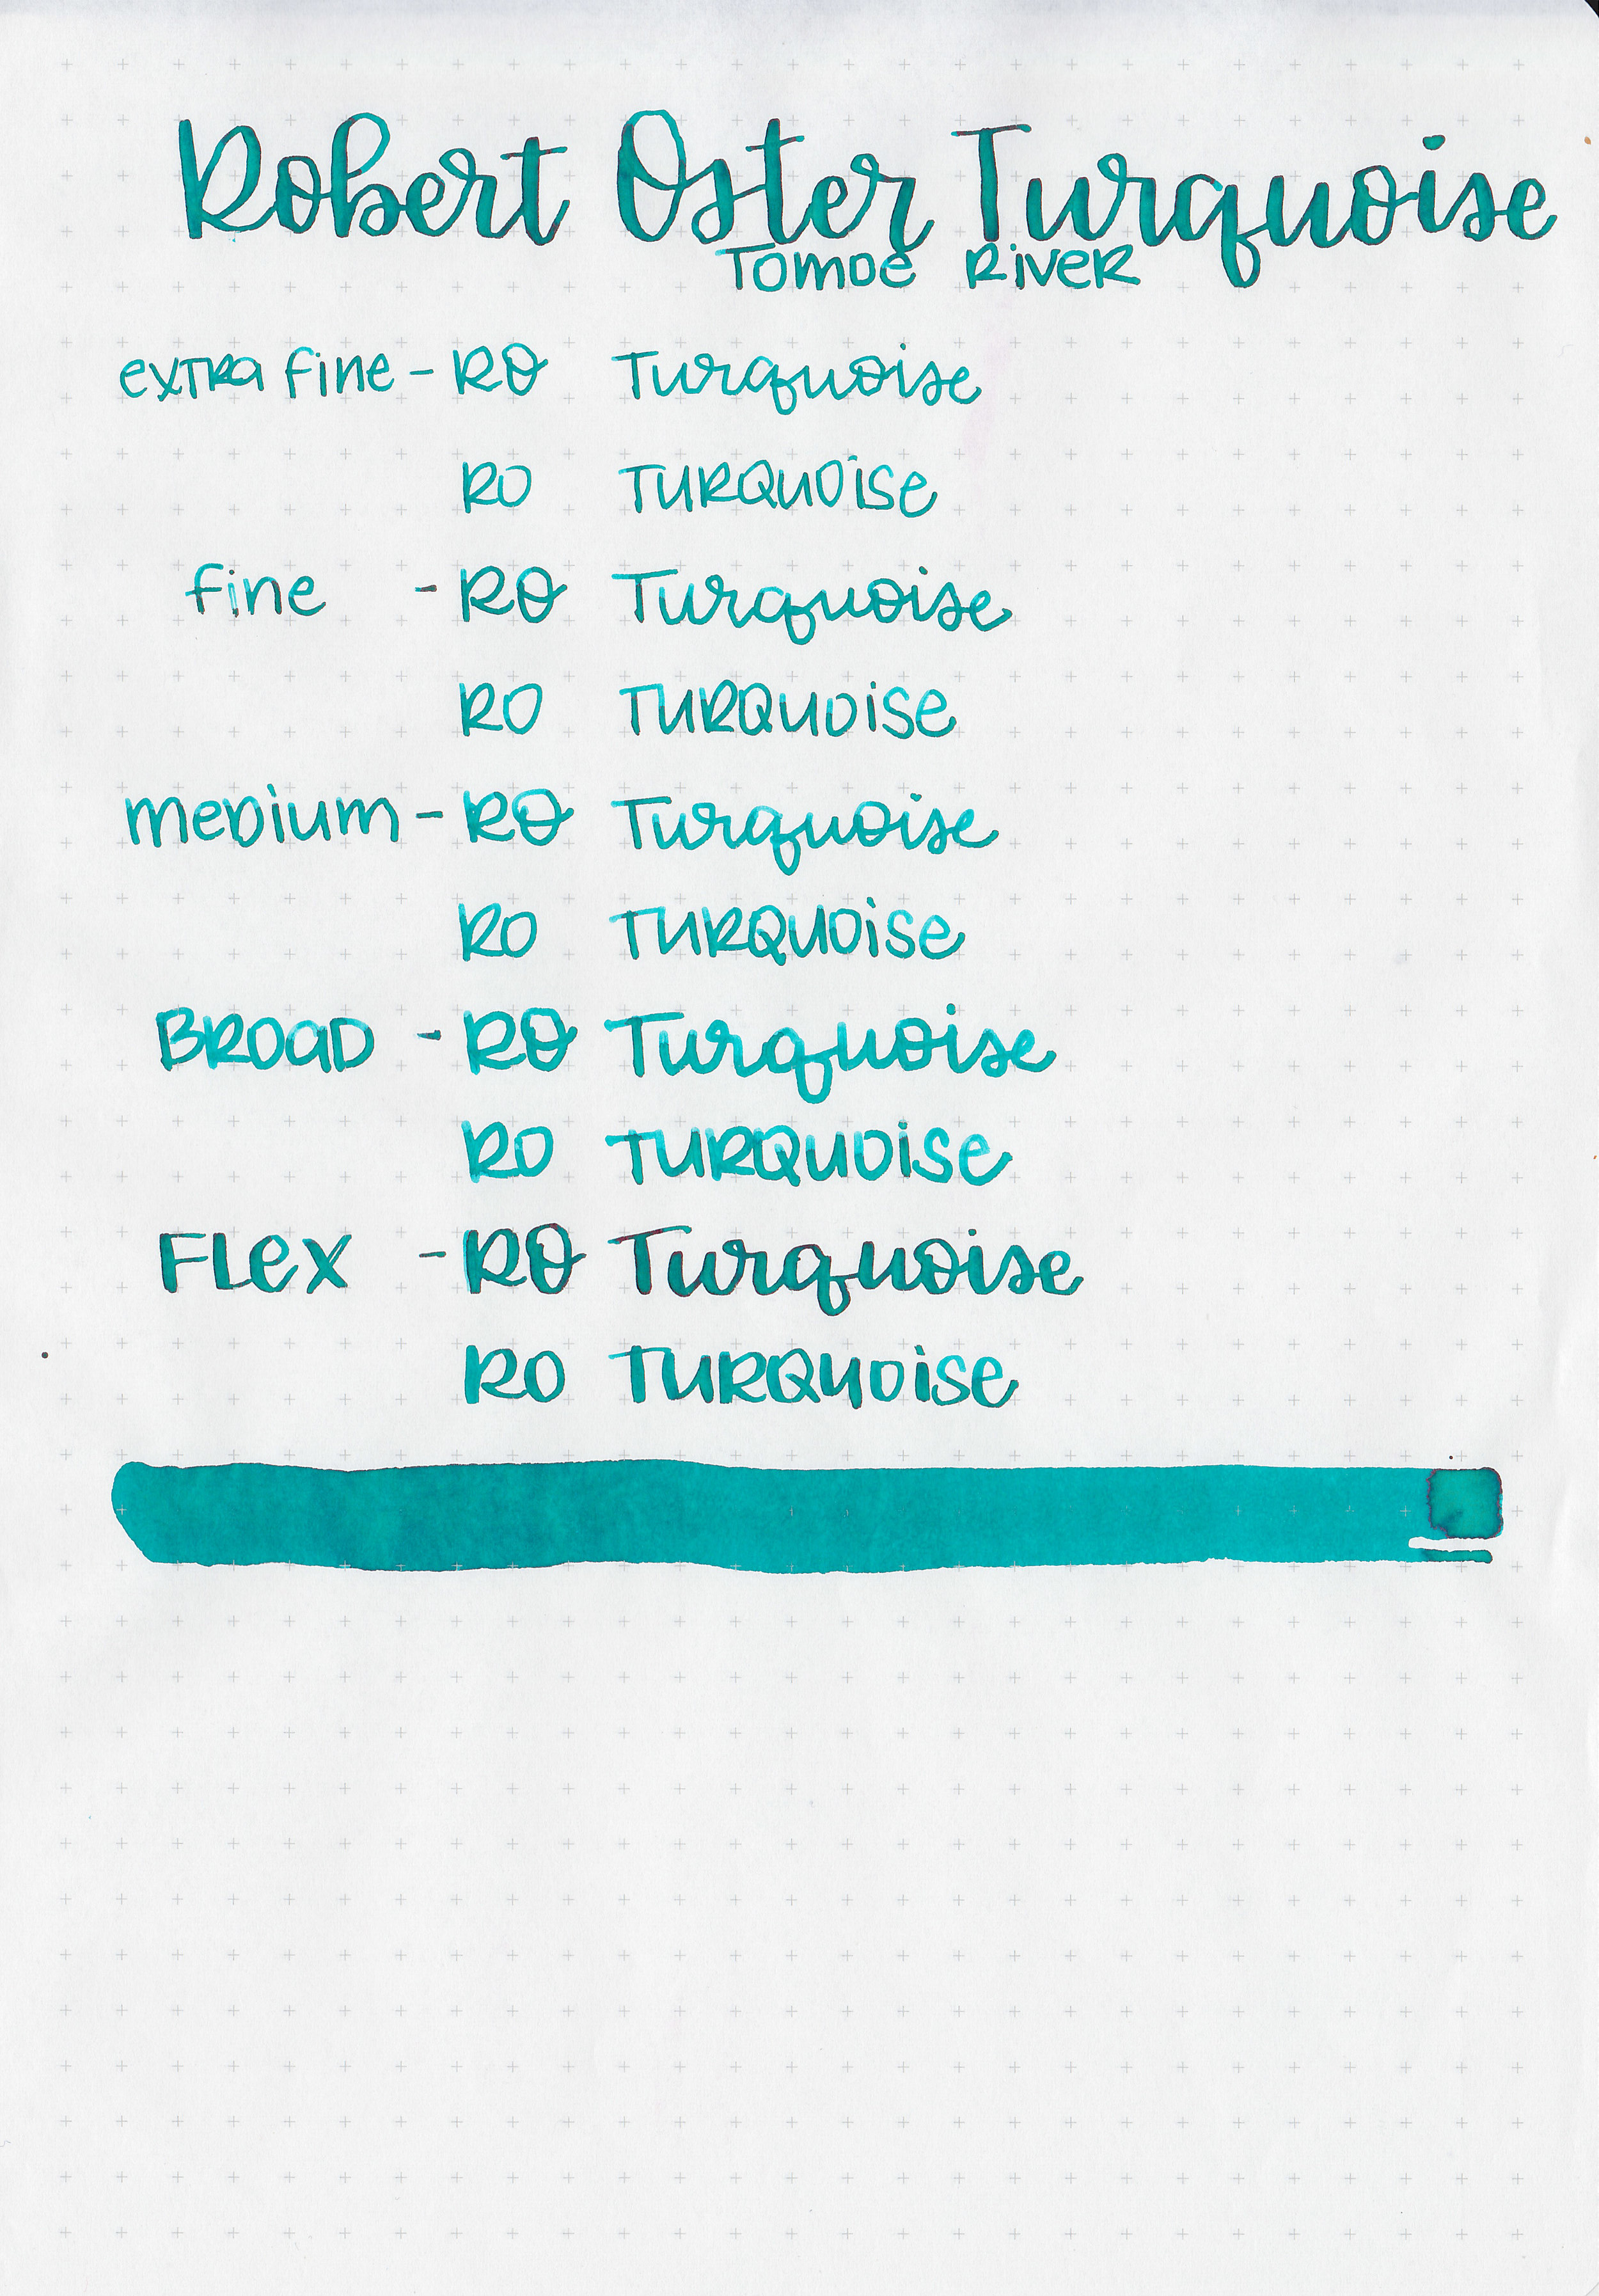 Robert Oster Turquoise
Tomoe River
extra fine - RO Turquoise
RO TURQUOise
fine - RO Turquoise
RO TURQUOise
meDium - RO Turquoise
RO TURQUOise
BROaD - RO Turquoise
RO TURQUOise
FLex - RO Turquoise
RO TURQUOise